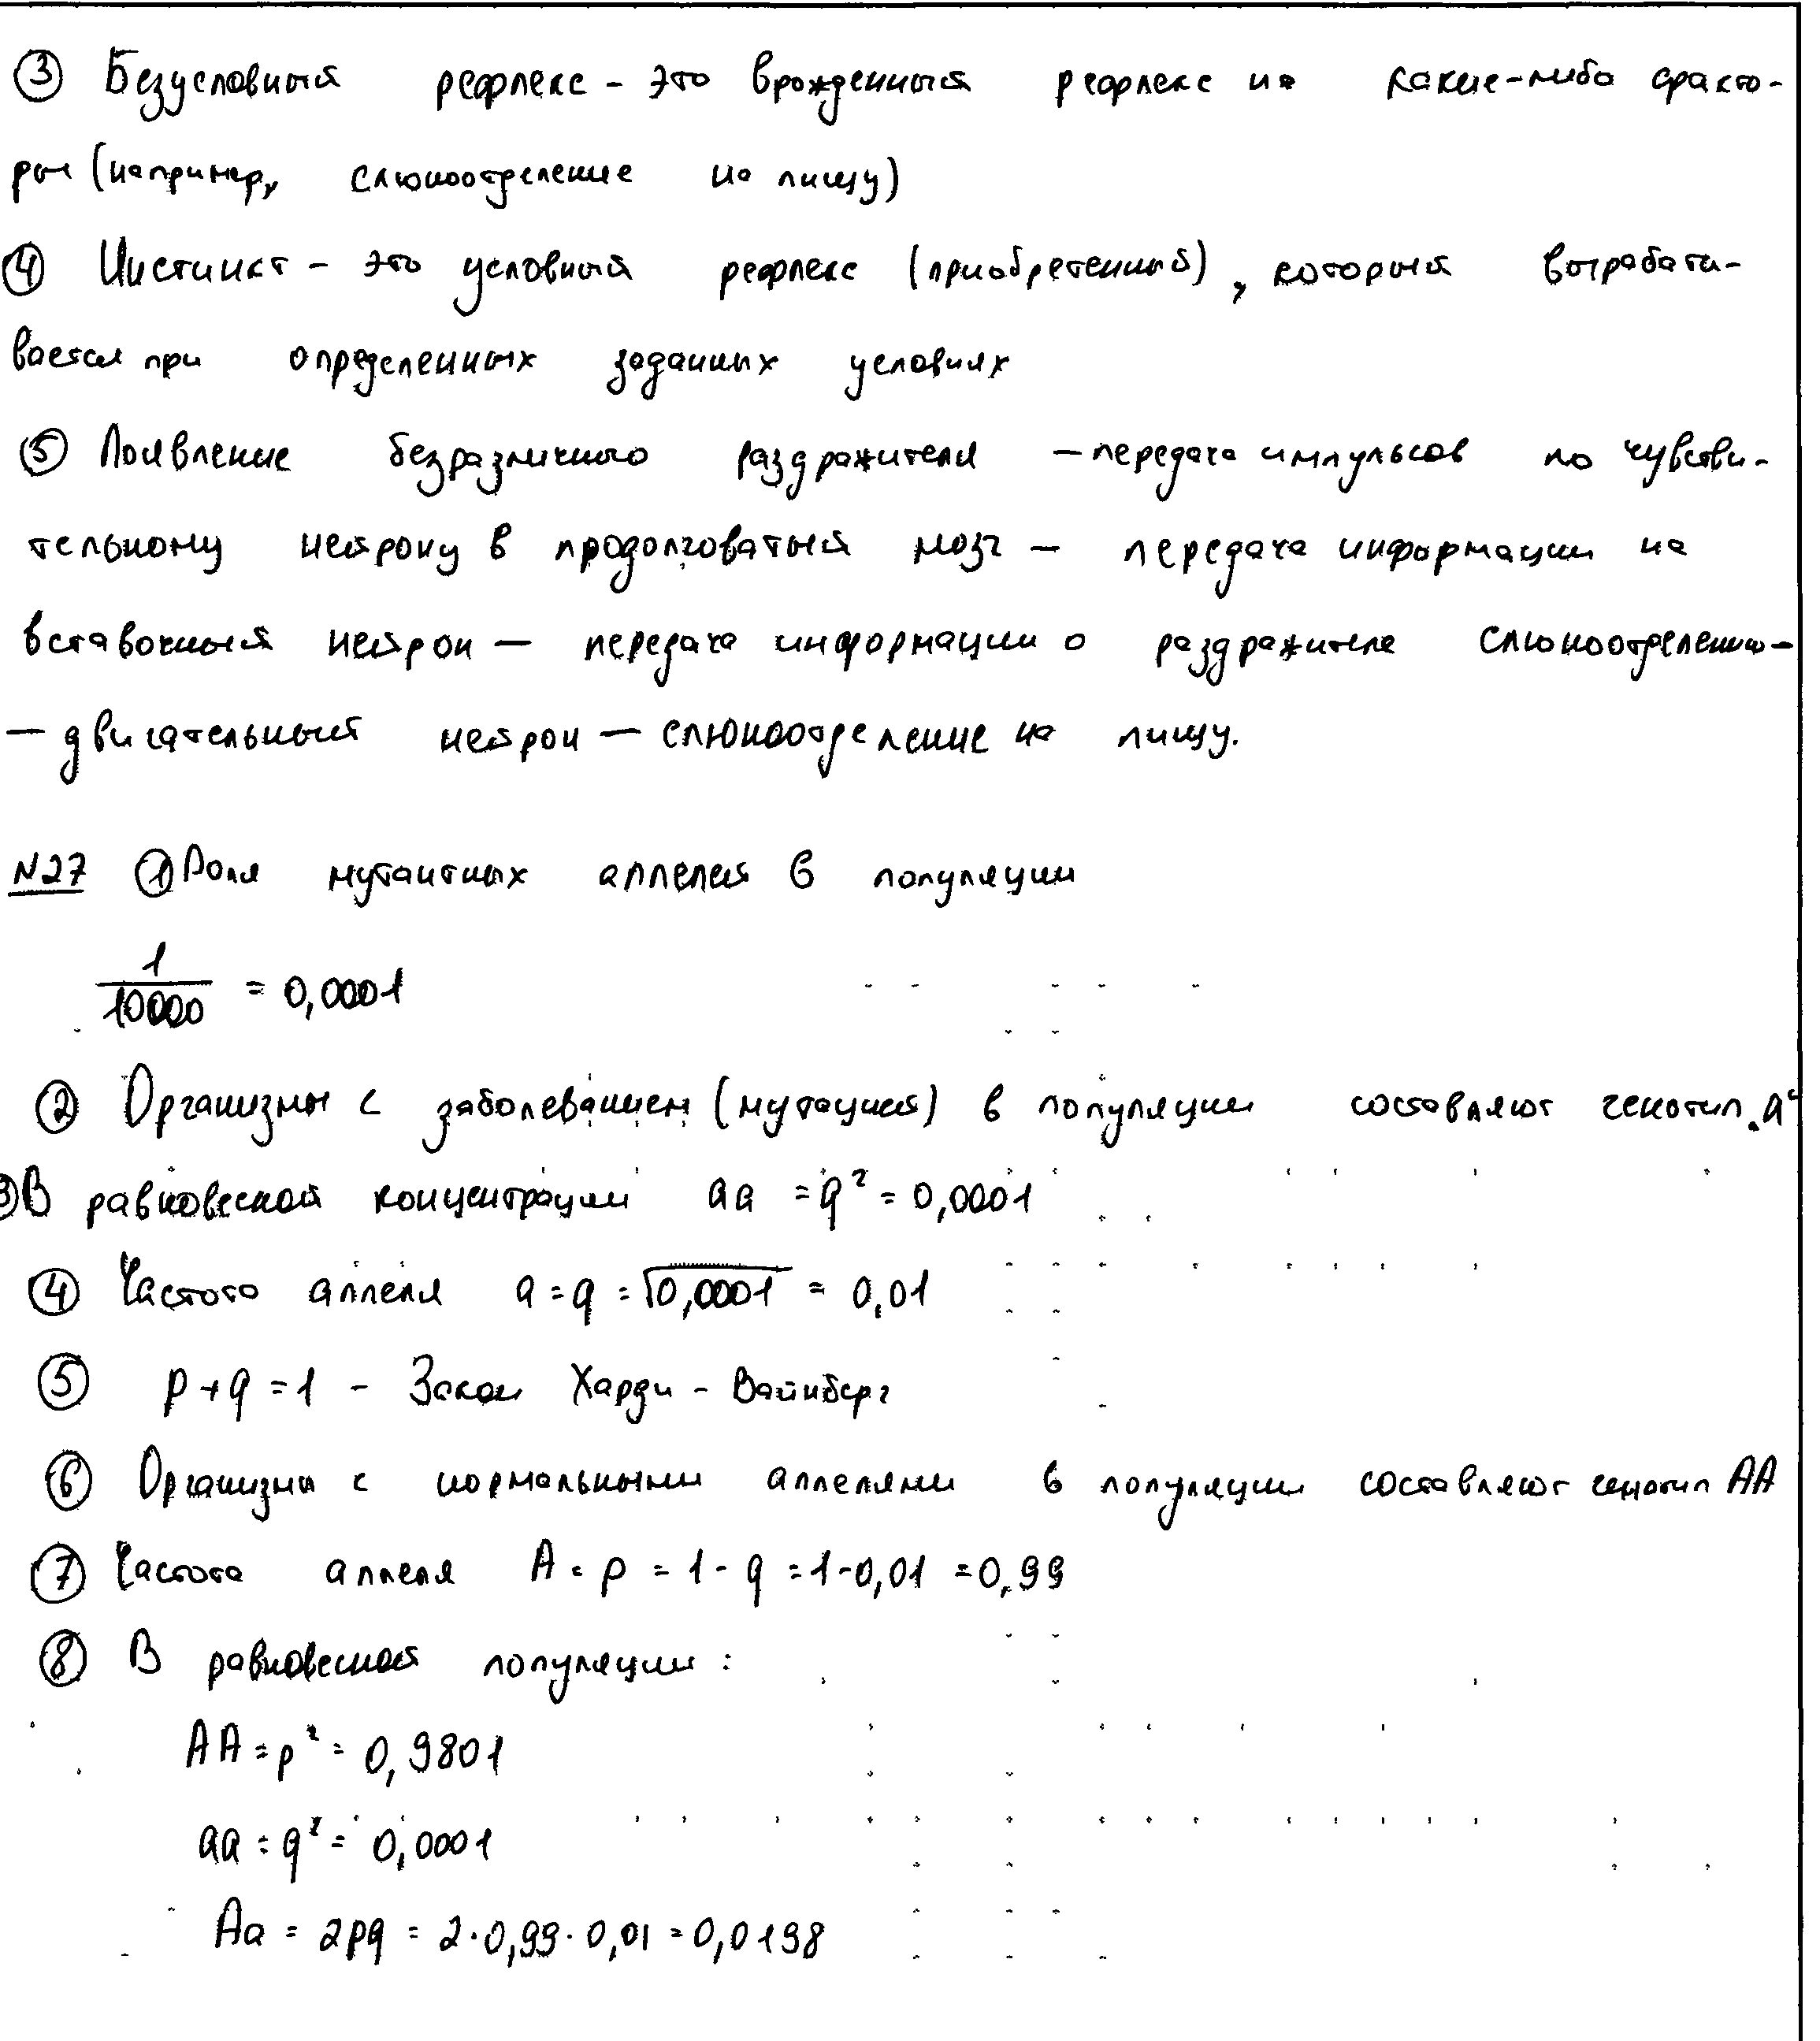 ③ Безусловный рефлекс - это врожденный рефлекс на какие-либо факто-
ры (например, слюноотделение на пищу)
④ Инстинкт - это условный рефлекс (приобретенный), который вырабаты-
вается при определенных заданных условиях
⑤ Появление безразличного раздражителя — передача импульсов по чувстви-
тельному нейрону в продолговатый мозг — передача информации на
вставочный нейрон — передача информации о раздражителе слюноотделению —
— двигательный нейрон — слюноотделение на пищу.
N27 ① Доля мутантных аллелей в популяции
1/10000 = 0,0001
② Организмы с заболеванием (мутацией) в популяции составляют генотип
③ В равновесной концентрации aa = q² = 0,0001
④ Частота аллеля a = q = √0,0001 = 0,01
⑤ p + q = 1 - Закон Харди - Вайнберг
⑥ Организмы с нормальными аллелями в популяции составляют генотип AA
⑦ Частота аллеля A = p = 1 - q = 1 - 0,01 = 0,99
⑧ В равновесной популяции:
AA = p² = 0,9801
aa = q² = 0,0001
Aa = 2pq = 2·0,99·0,01 = 0,0198